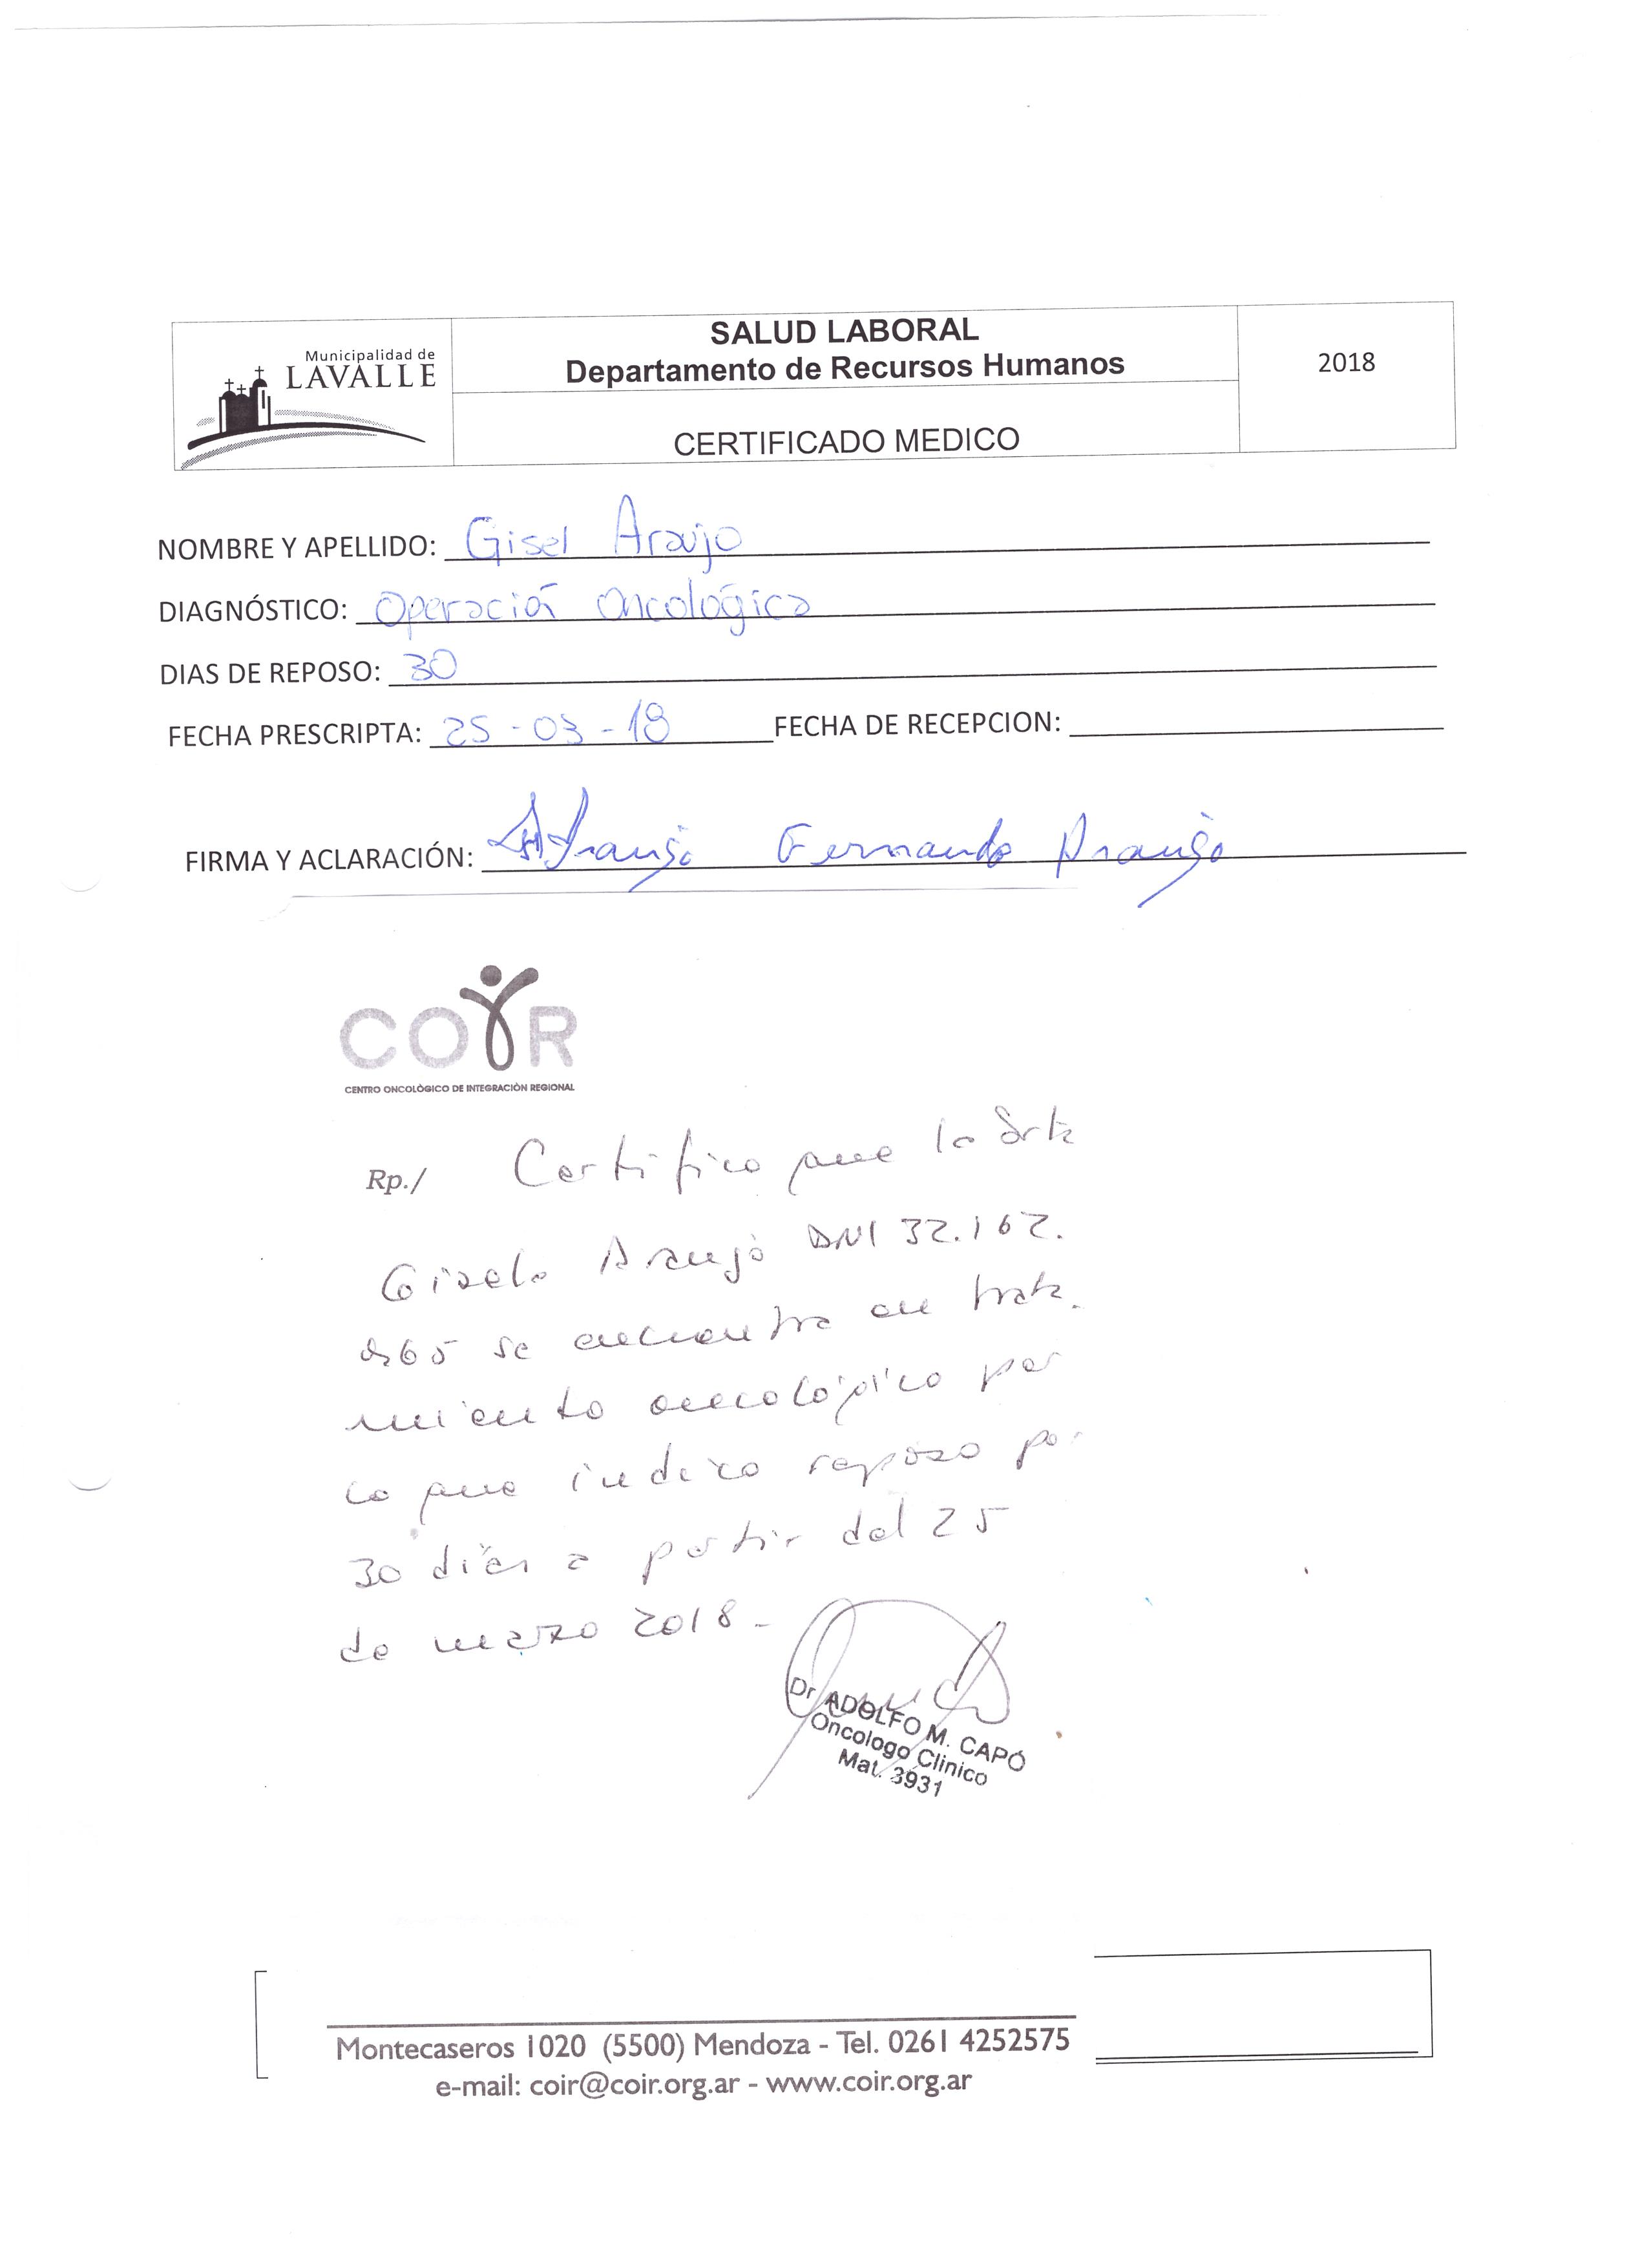 Municipalidad de
LAVALLE
SALUD LABORAL
Departamento de Recursos Humanos
CERTIFICADO MEDICO
2018
NOMBRE Y APELLIDO: Gisel Araujo
DIAGNÓSTICO: Operación Oncológica
DIAS DE REPOSO: 30
FECHA PRESCRIPTA: 25-03-18 FECHA DE RECEPCION:
FIRMA Y ACLARACIÓN: Araujo Fernando Araujo
COIR
CENTRO ONCOLÓGICO DE INTEGRACIÓN REGIONAL
Rp./ Certifico que la Srta
Gisela Araujo DNI 32.162.
se encuentra en trata
miento oncológico por
lo que indico reposo por
30 días a partir del 25
de marzo 2018-
Dr. ADOLFO M. CAPÓ
Oncologo Clinico
Mat. 3931
Montecaseros 1020 (5500) Mendoza - Tel. 0261 4252575
e-mail: coir@coir.org.ar - www.coir.org.ar